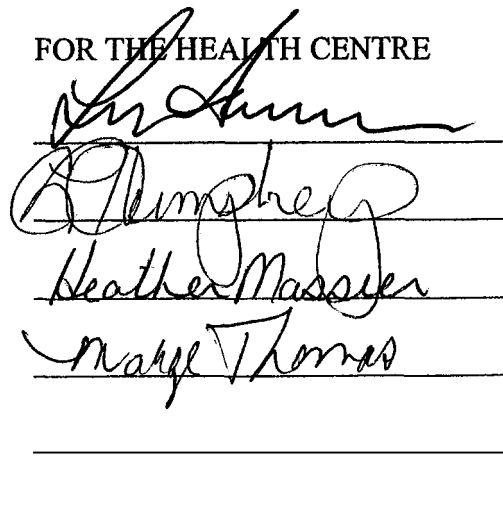 FOR THE HEALTH CENTRE
Humphrey
Heather Massier
Marge Thomas